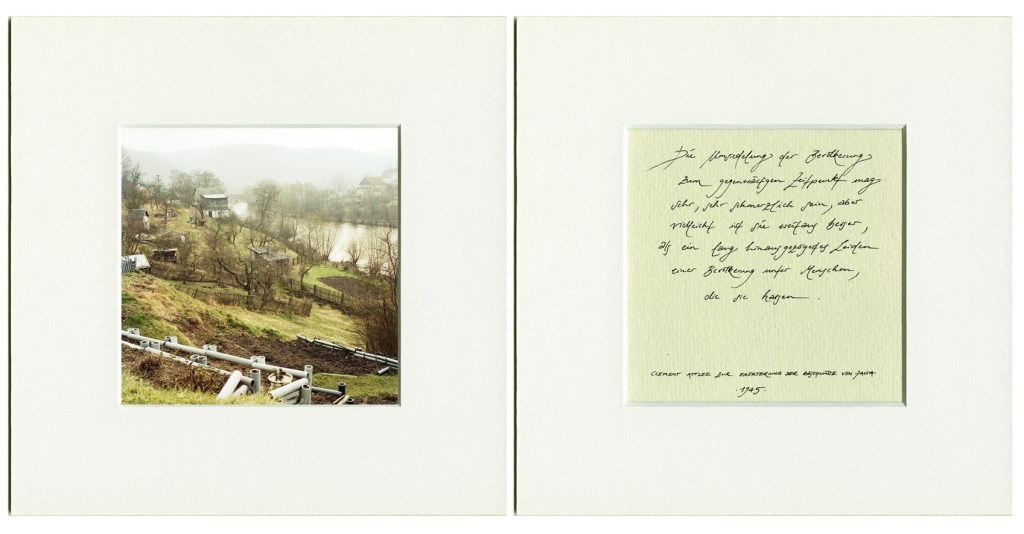 Die Umsiedelung der Bevölkerung
zum gegenwärtigen Zeitpunkt mag
sehr, sehr schmerzlich sein, aber
vielleicht ist sie weitaus besser,
als ein lang hinausgezögertes Leiden
einer Bevölkerung unter Menschen,
die sie hassen.
CLEMENT ATTLEE ZUR ERÖRTERUNG DER BESCHLÜSSE VON JALTA
·1945·